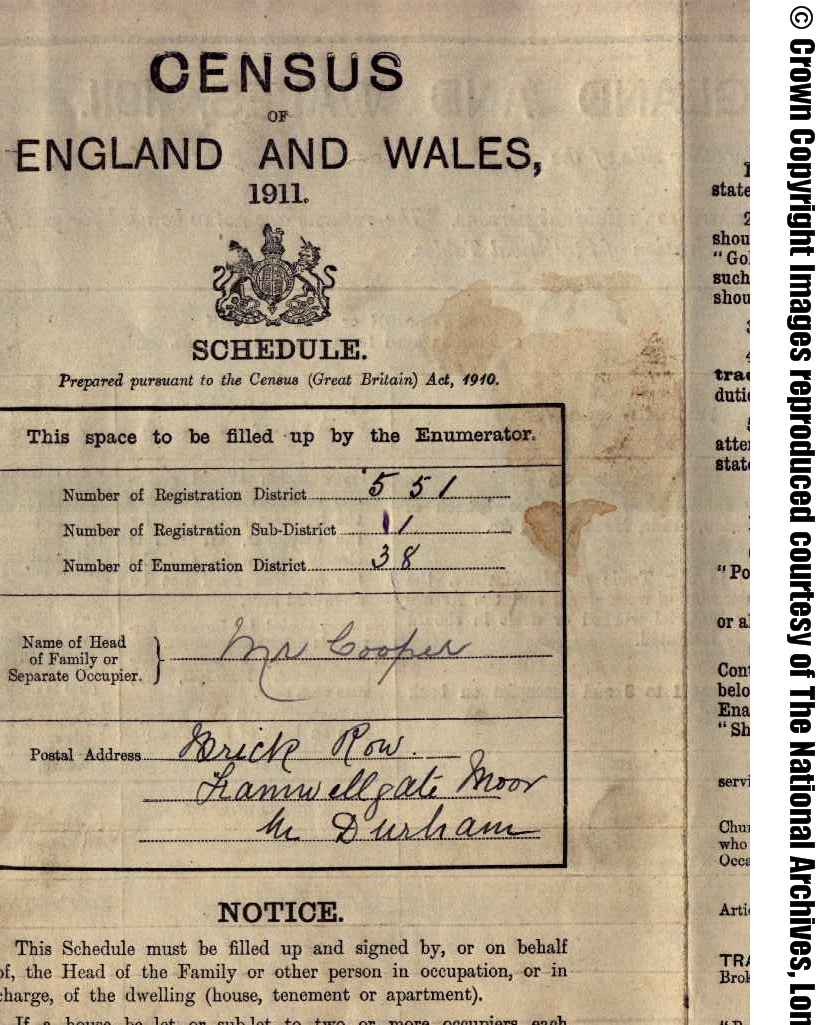 CENSUS
OF
ENGLAND AND WALES,
1911.
SCHEDULE.
Prepared pursuant to the Census (Great Britain) Act, 1910.
This space to be filled up by the Enumerator.
Number of Registration District 551
Number of Registration Sub-District 1
Number of Enumeration District 38
Name of Head
of Family or
Separate Occupier. } Mr Cooper
Postal Address Brick Row.
Framwellgate Moor
Nr Durham
NOTICE.
This Schedule must be filled up and signed by, or on behalf
of, the Head of the Family or other person in occupation, or in
charge, of the dwelling (house, tenement or apartment).
If a house be let or sublet to two or more occupiers each
state
shou
"Go
such
shou
trad
duti
atte
state
"Po
or a
Cont
belo
Ena
"Sh
servi
Chur
who
Occa
Arti
TRA
Brok
© Crown Copyright Images reproduced courtesy of The National Archives, Lon